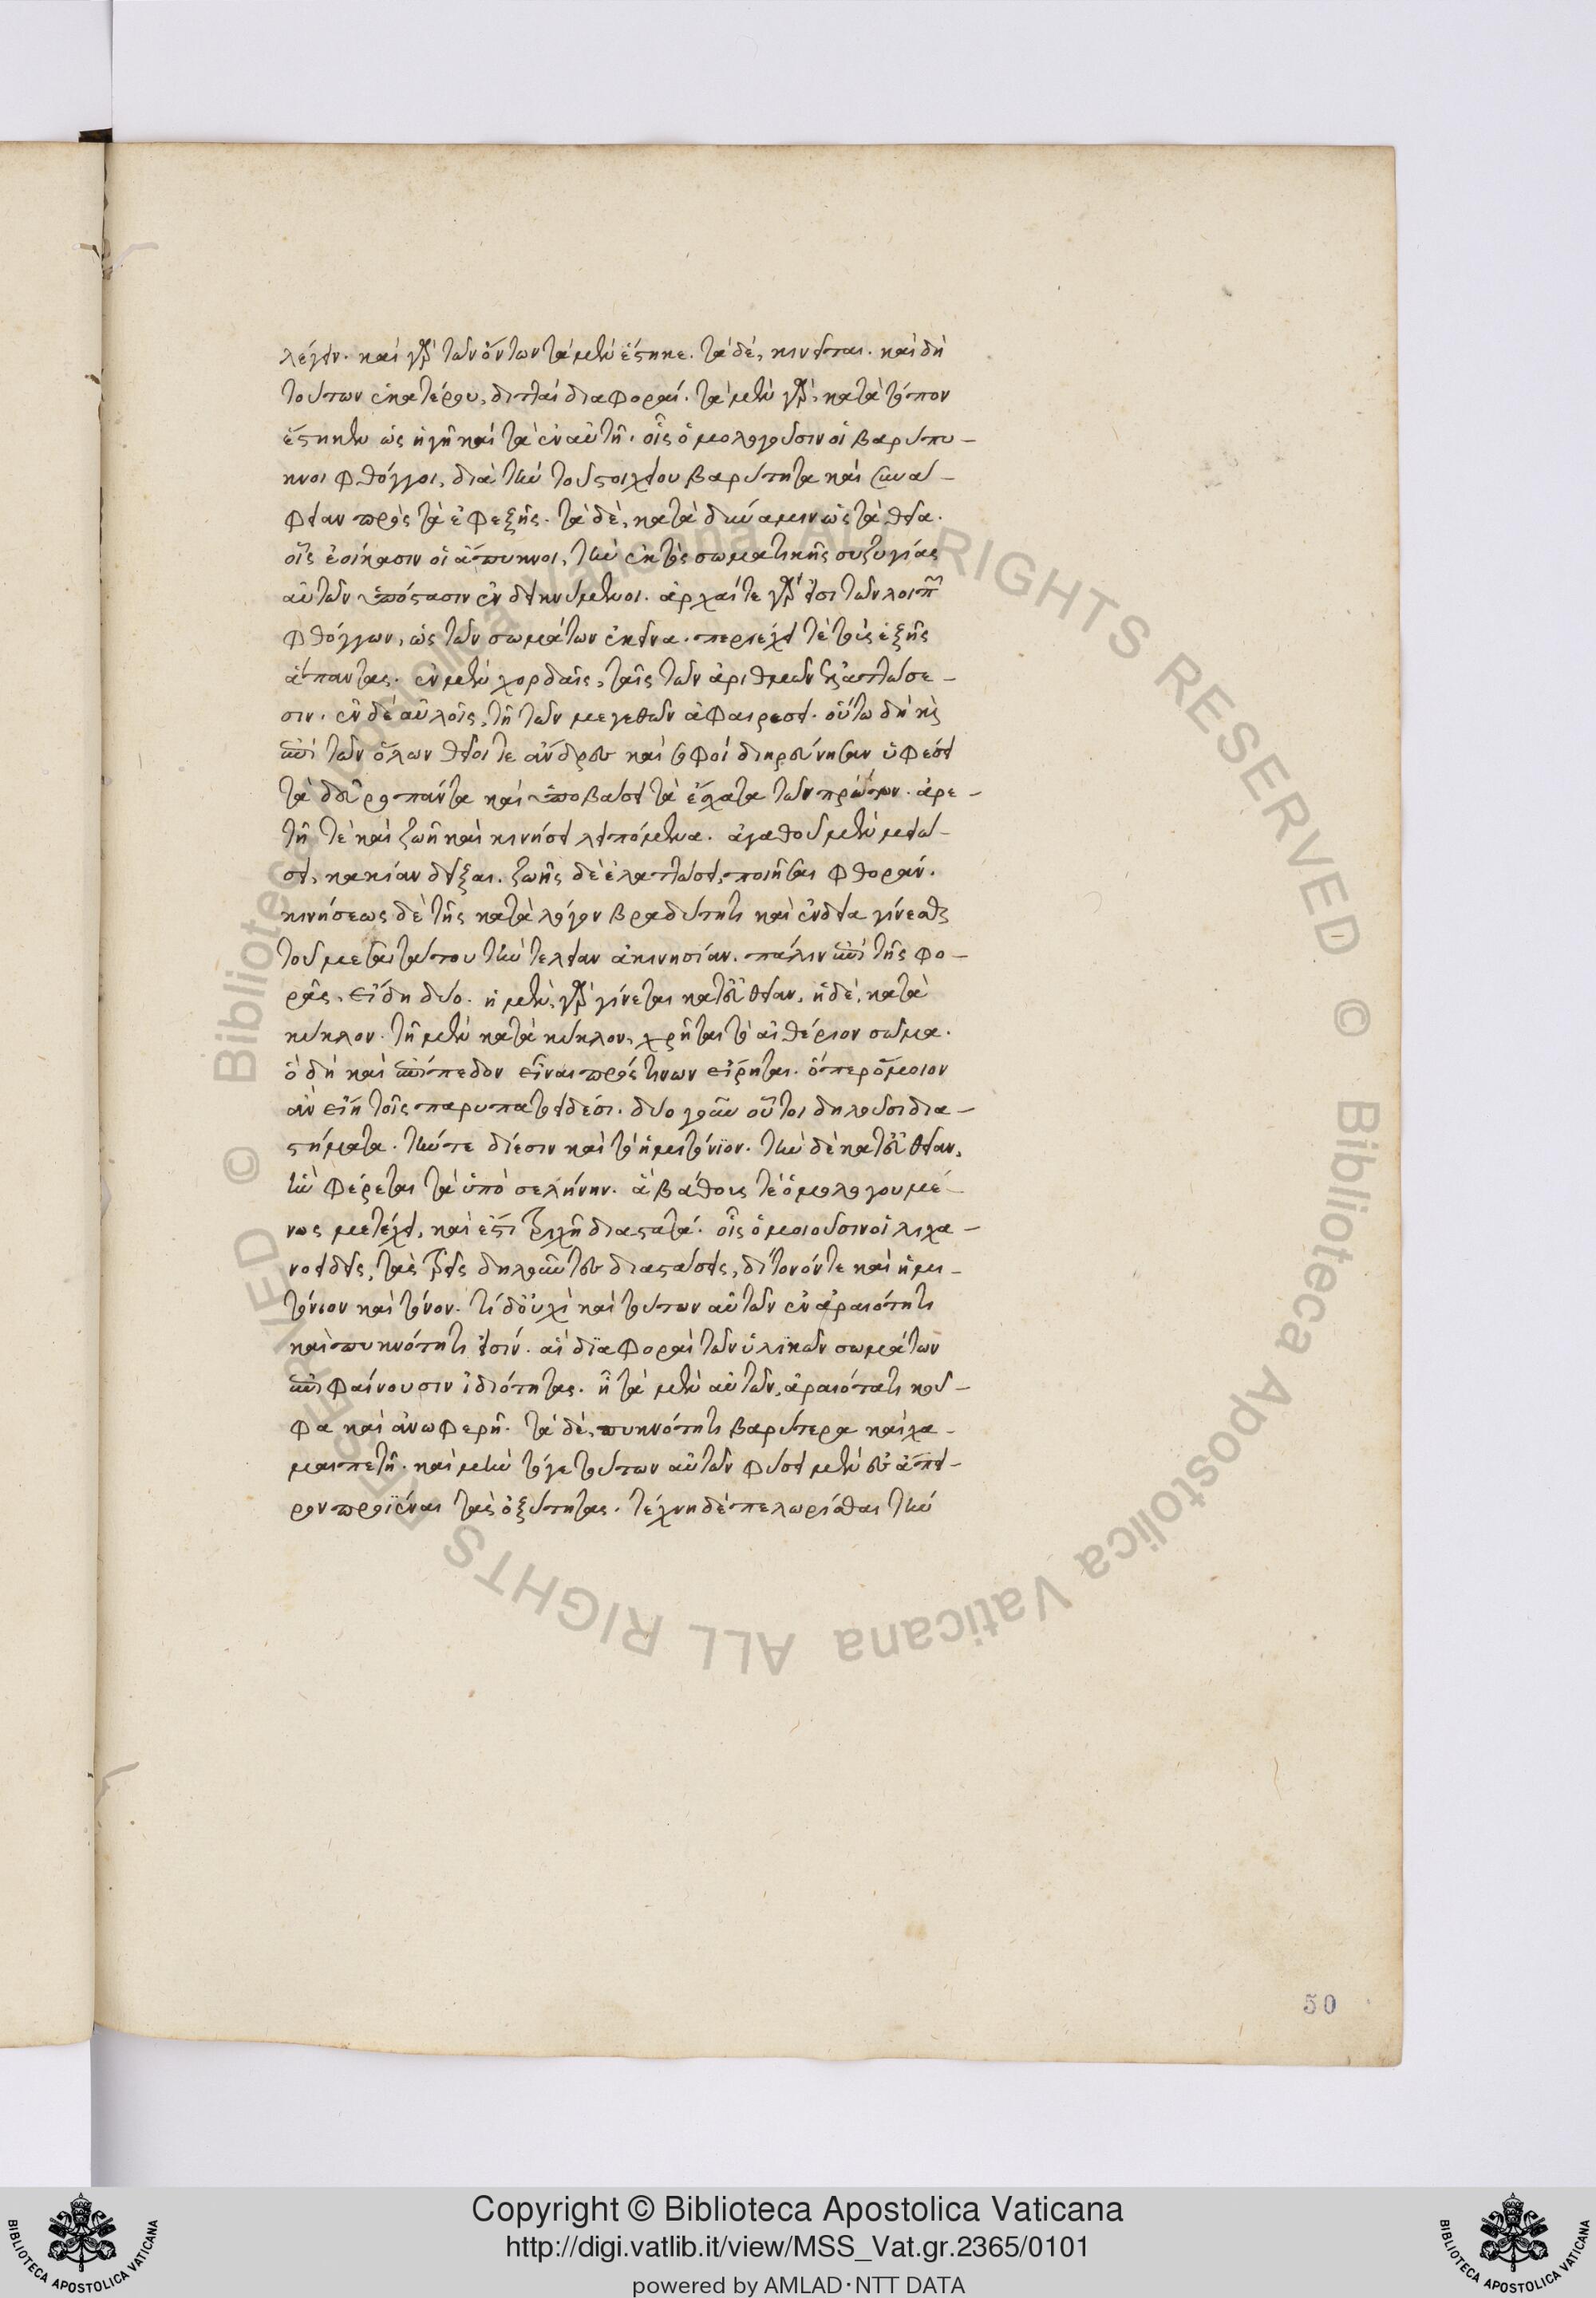 λέγειν. καὶ γὰρ τῶν ὄντων τὰ μὲν ἕστηκε. τὰ δὲ, κινεῖται. καὶ δὴ
τούτων ἑκατέρου, διτταὶ διαφοραί. τὰ μὲν γὰρ, κατὰ τόπον
ἕστηκεν ὡς ἡ γῆ καὶ τὰ ἐν αὐτῇ. οἷς ὁμολογοῦσιν οἱ βαρύπυ-
κνοι φθόγγοι, διὰ τὴν τοῦ στοιχείου βαρύτητα καὶ συνάφ-
φειαν πρὸς τὰ ἐφεξῆς. τὰ δὲ, κατὰ δύναμιν ὡς τὰ θεῖα.
οἷς ἐοίκασιν οἱ ἄπυκνοι, τὴν ἐκτὸς σωματικῆς συζυγίας
αὐτῶν ὑπόστασιν ἐνδεικνύμενοι. ἀρχαί τε γάρ εἰσι τῶν λοιπῶν
φθόγγων, ὡς τῶν σωμάτων ἐκεῖνα. περιέχει τὲ τοὺς ἑξῆς
ἅπαντας. ἐν μὲν χορδαῖς, ταῖς τῶν ἀριθμῶν ἐξαπλώσε-
σιν. ἐν δὲ αὐλοῖς, τῇ τῶν μεγεθῶν ἀφαιρέσει. οὕτω δὴ καὶ
ἐπὶ τῶν ὅλων θεῖοί τε ἄνδρες καὶ σοφοὶ διηρεύνησαν ὑφέσει
τὰ δεῦρο πάντα καὶ ὑποβάσει τὰ ἔσχατα τῶν πρώτων. ἀρε-
τῇ τὲ καὶ ζωῇ καὶ κινήσει λειπόμενα. ἀγαθοῦ μὲν μειώ-
σει, κακίαν δεῖξαι. ζωῆς δὲ ἐλαττώσει, ποιῆσαι φθοράν.
κινήσεως δὲ τῆς κατὰ λόγον βραδύτητι καὶ ἐνδείᾳ γίνεσθαι
τοῦ μετὰ ταύτου τὴν τελείαν ἀκινησίαν. πάλιν ἐπὶ τῆς φο-
ρᾶς, εἴδη δύο. ἡ μὲν, γὰρ γίνεται κατ' εὐθεῖαν, ἡ δὲ, κατὰ
κύκλον. τῇ μὲν κατὰ κύκλον, χρῆται τὸ αἰθέριον σῶμα.
ὃ δὴ καὶ ἐπίπεδον εἶναι πρός τινων εἴρηται. ὅπερ ὅμοιον
ἂν εἴη τοῖς παρυπατοειδέσι. δύο γοῦν οὗτοι δηλοῦσι δια-
στήματα. τήν τε δίεσιν καὶ τὸ ἡμιτόνιον. τὴν δὲ κατ' εὐθεῖαν,
ἣν φέρεται τὰ ὑπὸ σελήνην. ἃ βάθους τὲ ὁμολογουμέ-
νως μετέχει, καὶ ἔστι τριχῇ διαστατά. οἷς ὁμοιοῦσιν οἱ λιχα-
νοειδεῖς, τὰς τρεῖς δηλοῦντες διαστάσεις, δίτονόν τε καὶ ἡμι-
τόνιον καὶ τόνον. τί δ' οὐχὶ καὶ τούτων αὐτῶν ἐν ἀραιότητι
καὶ πυκνότητι εἰσίν. αἱ διαφοραὶ τῶν ὑλικῶν σωμάτων
ἐπιφαίνουσιν ἰδιότητας. ἢ τὰ μὲν αὐτῶν, ἀραιότατι κοῦ-
φα καὶ ἀνωφερῆ. τὰ δὲ, πυκνότητι βαρύτερα καὶ χα-
μαιπετῆ. καὶ μὴν τό γε τούτων αὐτῶν φύσει μὲν ἐς ἄπει-
ρον προϊέναι τὰς ὀξύτητας. τέχνῃ δὲ πελωρίσθαι τὴν
50
Copyright © Biblioteca Apostolica Vaticana
http://digi.vatlib.it/view/MSS_Vat.gr.2365/0101
powered by AMLAD·NTT DATA